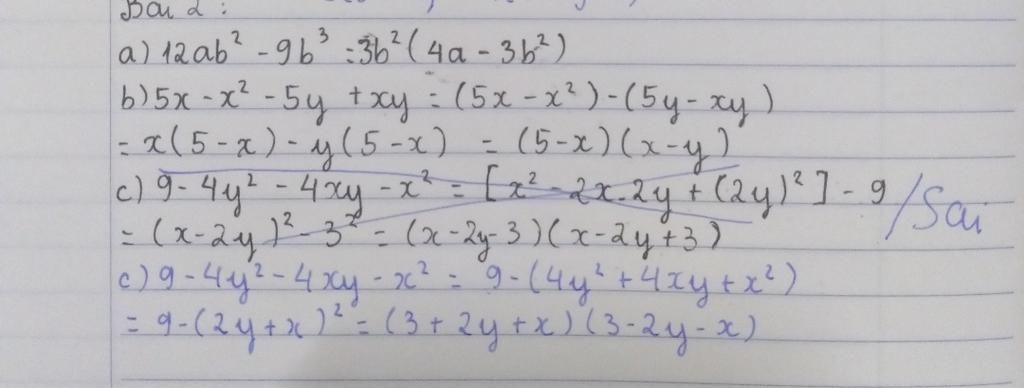 Bài 2:
a) 12ab² - 9b³ = 3b²(4a - 3b²)
b) 5x - x² - 5y + xy = (5x - x²) - (5y - xy)
= x(5 - x) - y(5 - x) = (5 - x)(x - y)
c) 9 - 4y² - 4xy - x² = [x² - 2x.2y + (2y)²] - 9 / Sai
= (x - 2y)² - 3² = (x - 2y - 3)(x - 2y + 3)
c) 9 - 4y² - 4xy - x² = 9 - (4y² + 4xy + x²)
= 9 - (2y + x)² = (3 + 2y + x)(3 - 2y - x)